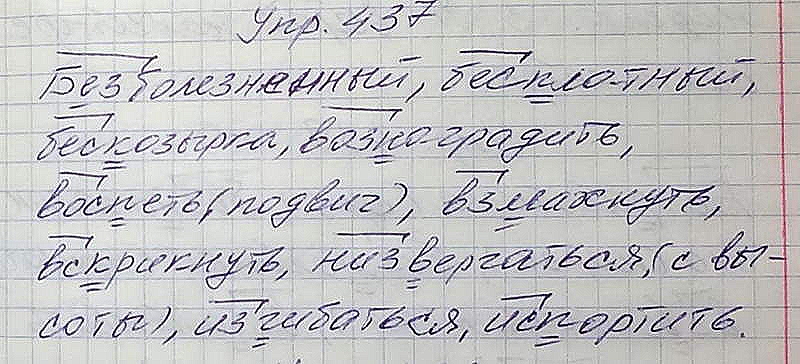 Упр. 437
Безболезненный, бесплотный,
бескозырка, вознаградить,
воспеть (подвиг), взмахнуть,
вскрикнуть, низвергаться, (с вы-
соты), изгибаться, испортить.